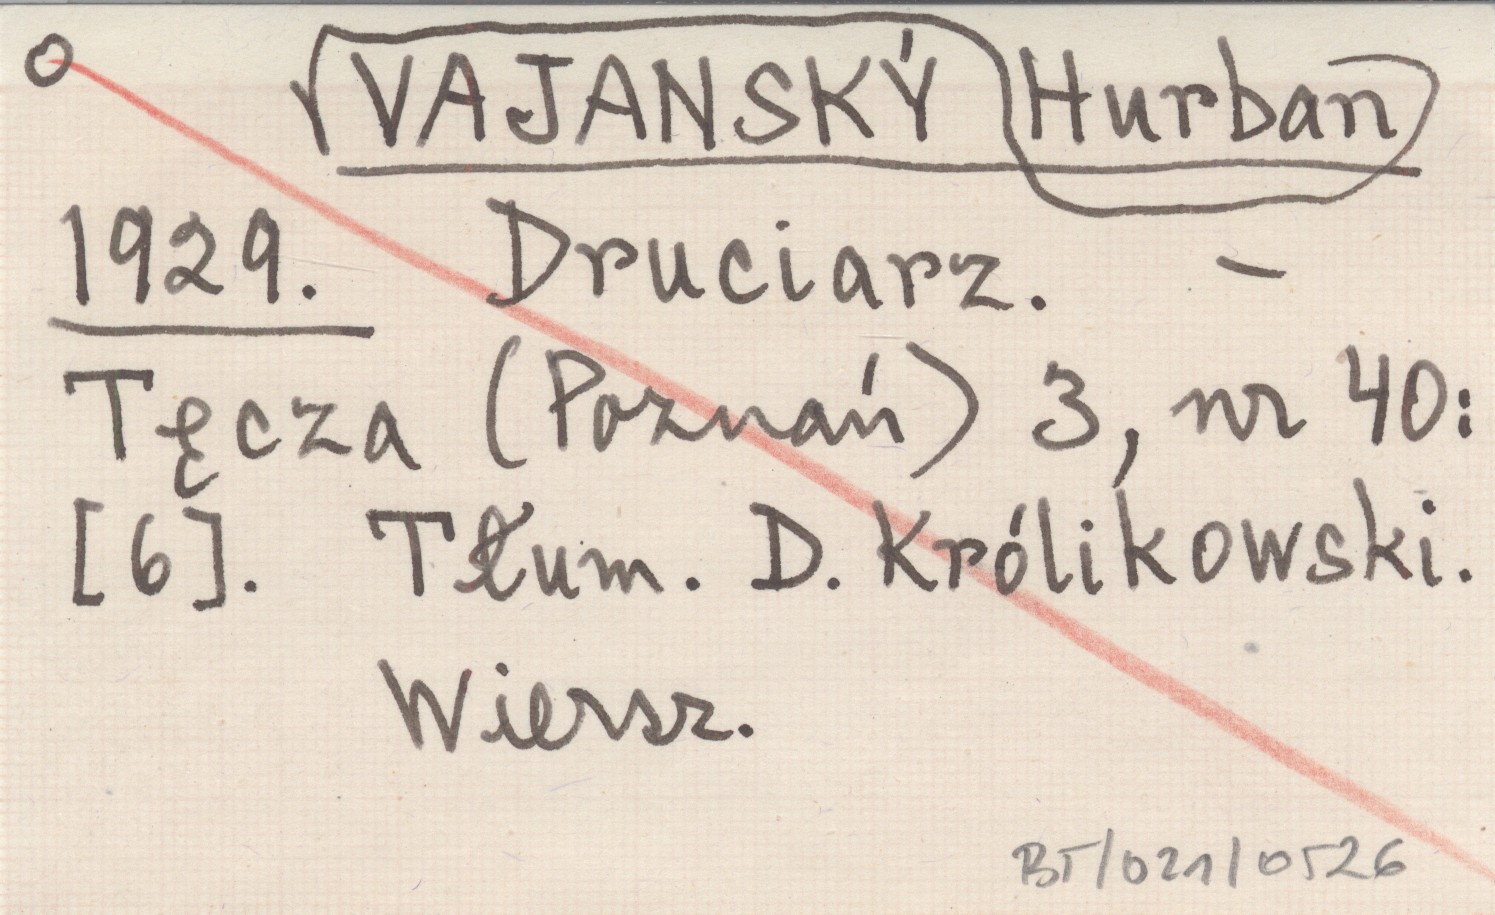 VAJANSKÝ Hurban
1929. Druciarz. –
Tęcza (Poznań) 3, nr 40:
[6]. Tłum. D. Królikowski.
Wiersz.
BT/021/0526